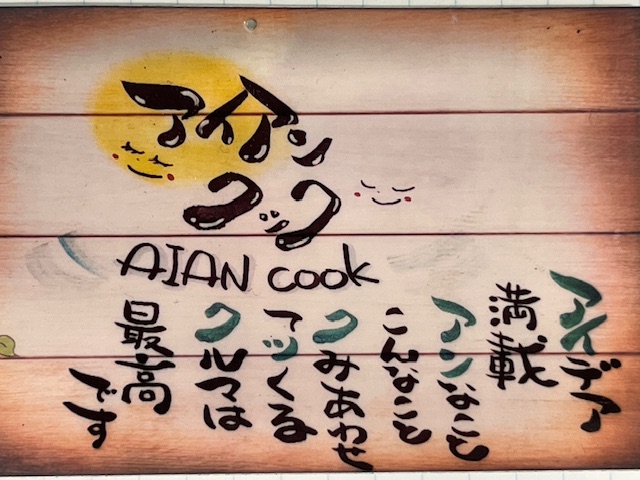 アイアン
クック
AIAN cook
アイデア
満載
アンなこと
こんなこと
クみあわせ
てッくる
クルマは
最高
です